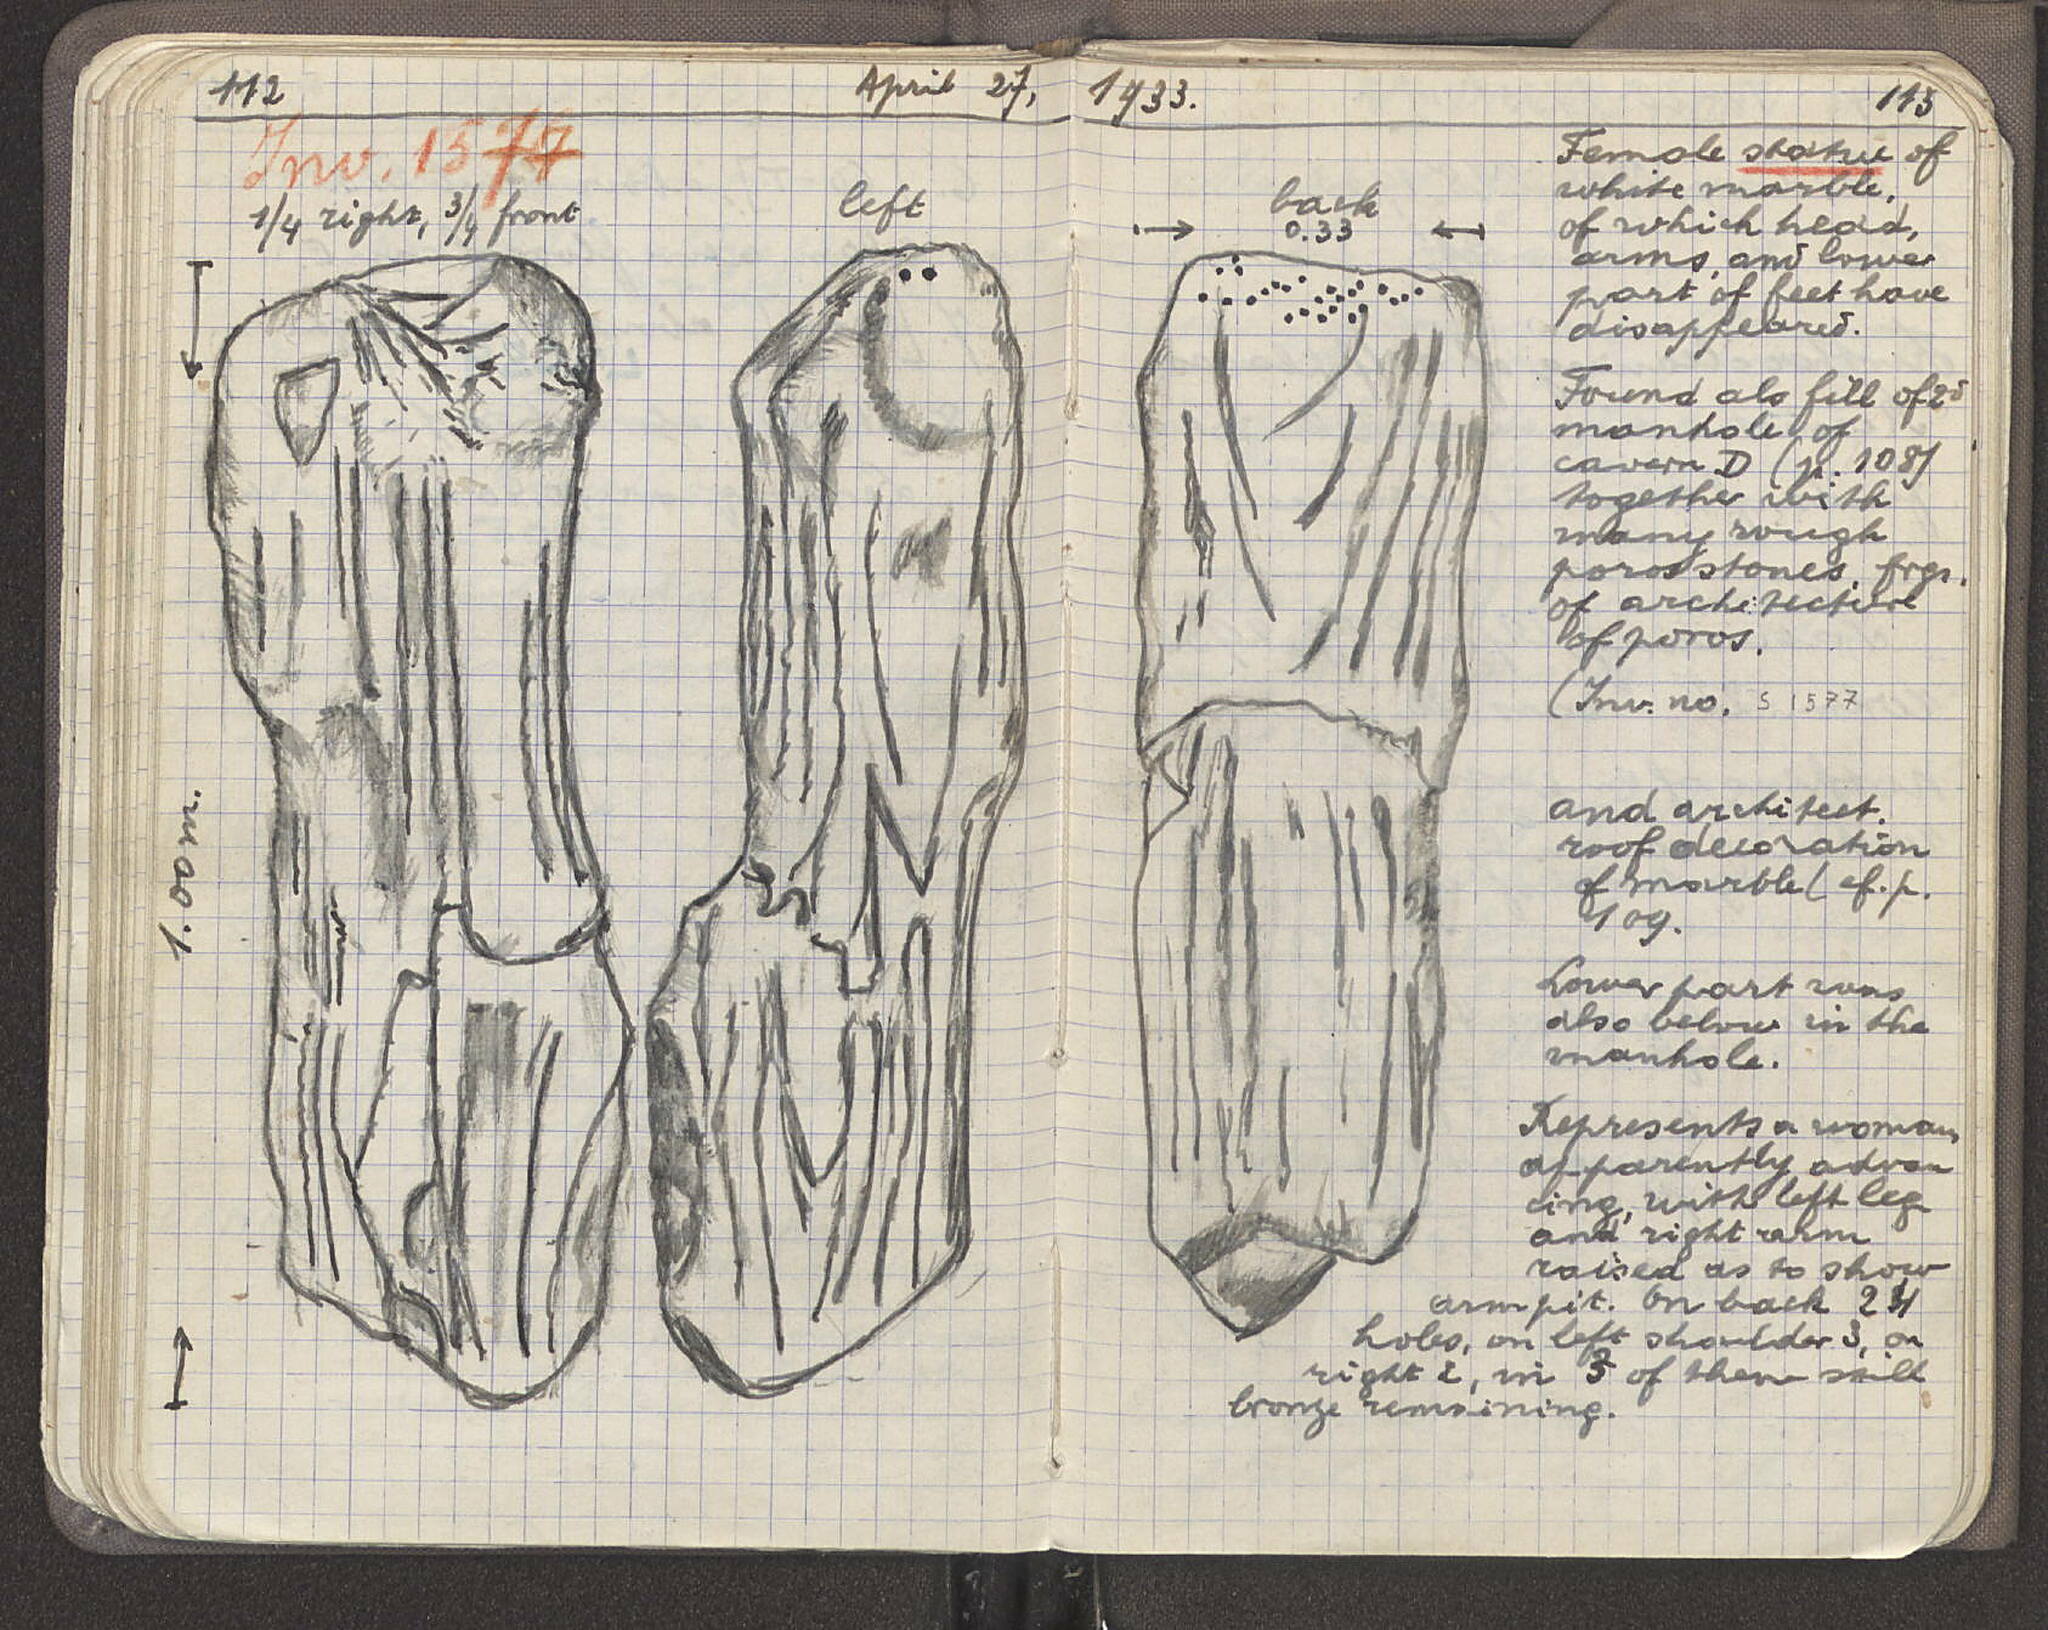 112
April 27,
Inv. 1577
1/4 right, 3/4 front
left
1.00 m.
1933.
113
back
0.33
Female statue of
white marble,
of which head,
arms, and lower
part of feet have
disappeared.
Found als fill of 2d
manhole of
cavern D (p. 108)
together with
many rough
poros stones, frgs.
of architecture
of poros.
(Inv. no. S 1577
and architect.
roof decoration
of marble (cf. p.
109.
Lower part was
also below in the
manhole.
Represents a woman
apparently advan
cing, with left leg
and right arm
raised as to show
armpit. On back 24
holes, on left shoulder 3, on
right 2, in 3 of them still
bronze remaining.